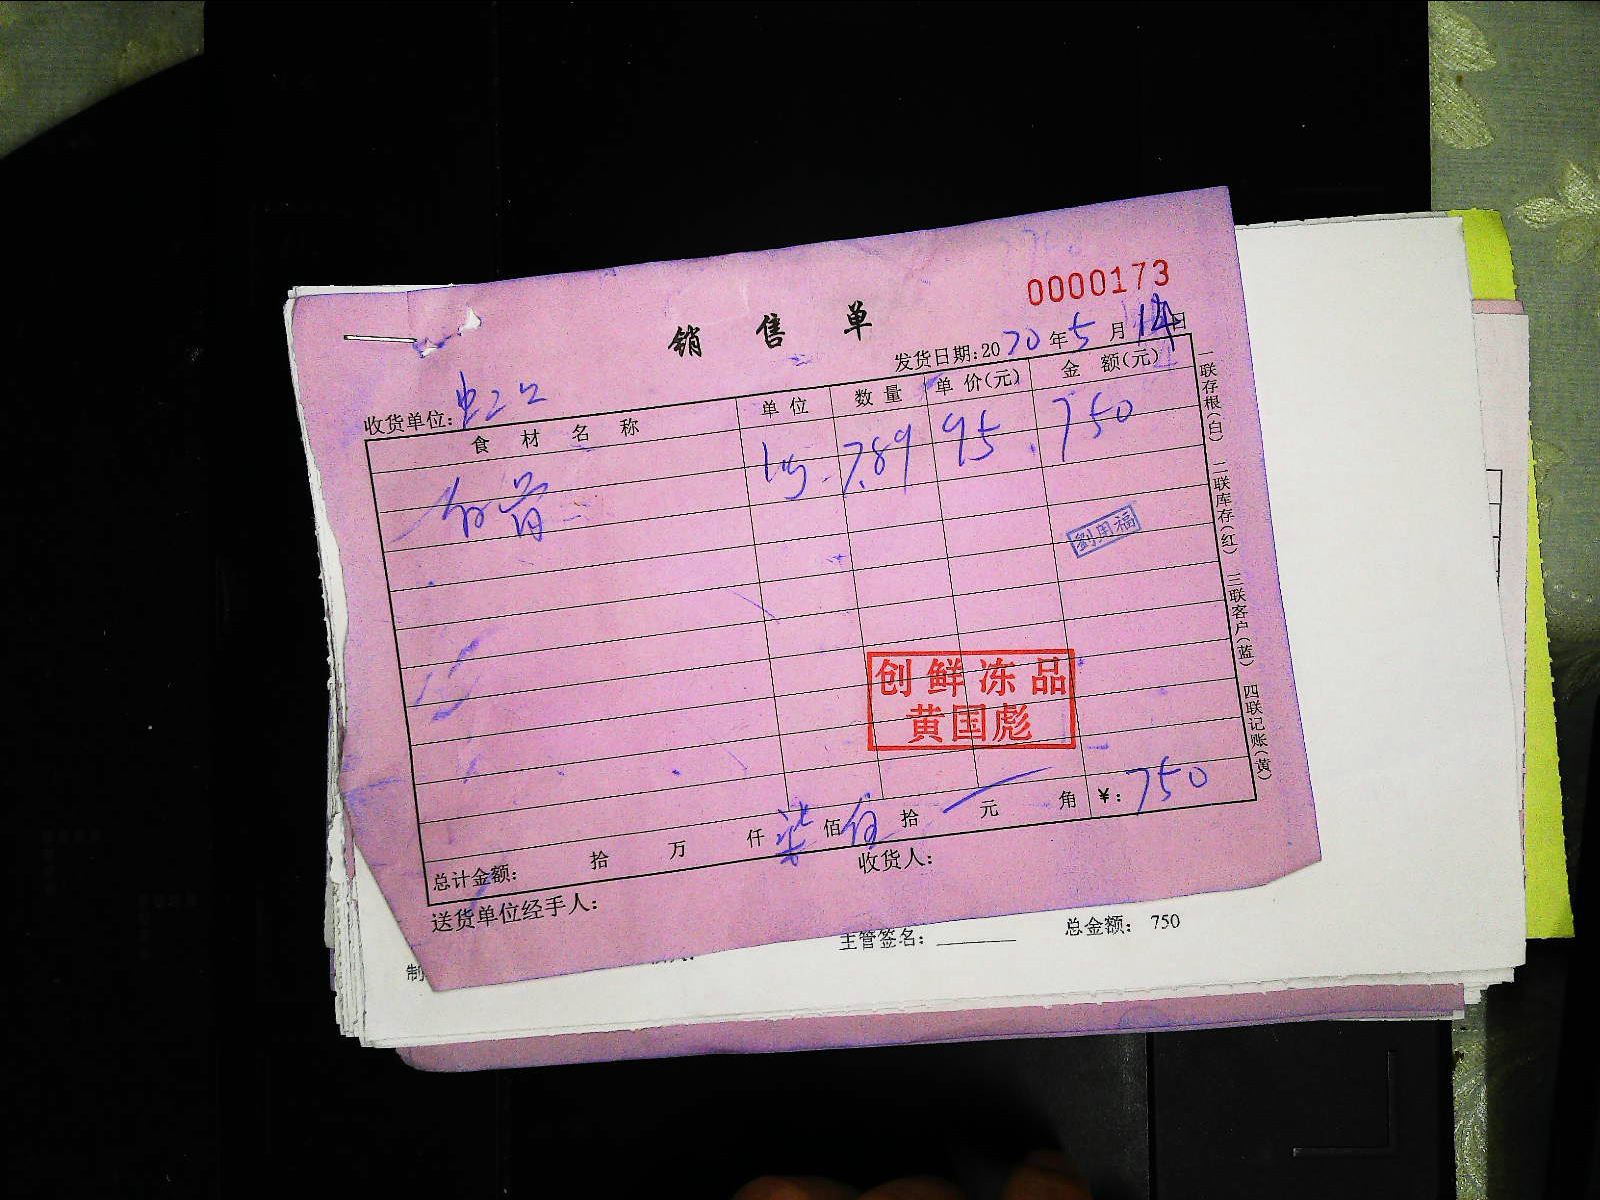 0000173
销 售 单
发货日期:2020年5月14日
收货单位:
食 材 名 称 单 位 数 量 单 价(元) 金 额(元)
7.89 95 750
劉用福
创鲜冻品
黄国彪
总计金额: 拾 万 仟 柒 佰 伍 拾 元 角 ¥: 750
送货单位经手人: 收货人:
一联存根(白) 二联库存(红) 三联客户(蓝) 四联记账(黄)
制
主管签名: 总金额: 750